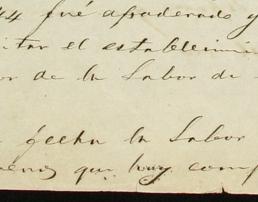 44 fué apoderado y
itar el establecimi
or de la Labor de
fecha la Labor
menos que hoy comp